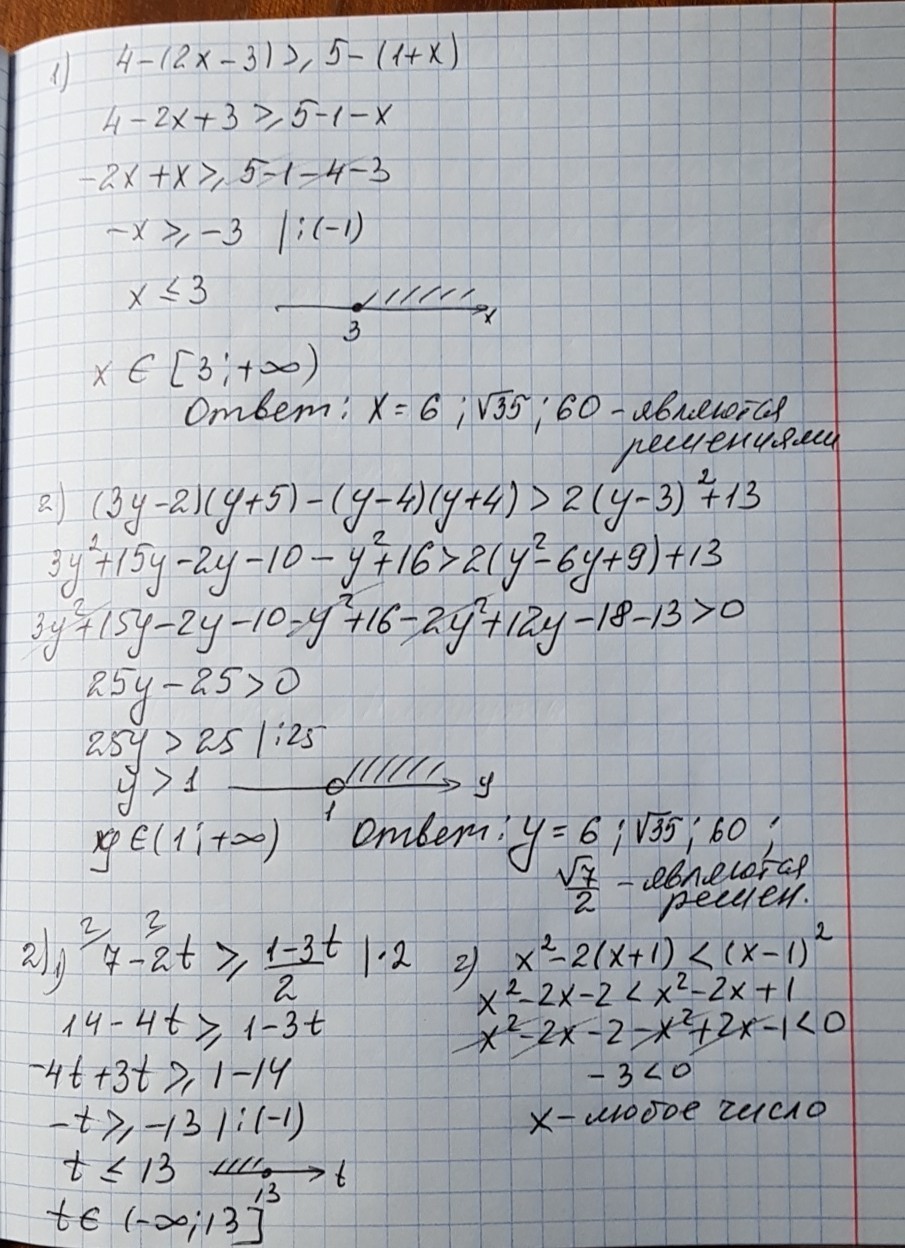 1) 4-(2x-3)≥5-(1+x)
4-2x+3≥5-1-x
-2x+x≥5-1-4-3
-x≥-3 |:(-1)
x≤3
3 x
x∈[3;+∞)
Ответ: x=6;√35;60-являются
решениями
2) (3y-2)(y+5)-(y-4)(y+4)>2(y-3)²+13
3y²+15y-2y-10-y²+16>2(y²-6y+9)+13
3y²+15y-2y-10-y²+16-2y²+12y-18-13>0
25y-25>0
25y>25 |:25
y>1
1 y
y∈(1;+∞) Ответ: y=6;√35;60;
√7/2 -являются
решен.
2) 1) 7-2t≥(1-3t)/2 |·2
14-4t≥1-3t
-4t+3t≥1-14
-t≥-13 |:(-1)
t≤13
13 t
t∈(-∞;13]
2) x²-2(x+1)<(x-1)²
x²-2x-2<x²-2x+1
x²-2x-2-x²+2x-1<0
-3<0
x-любое число